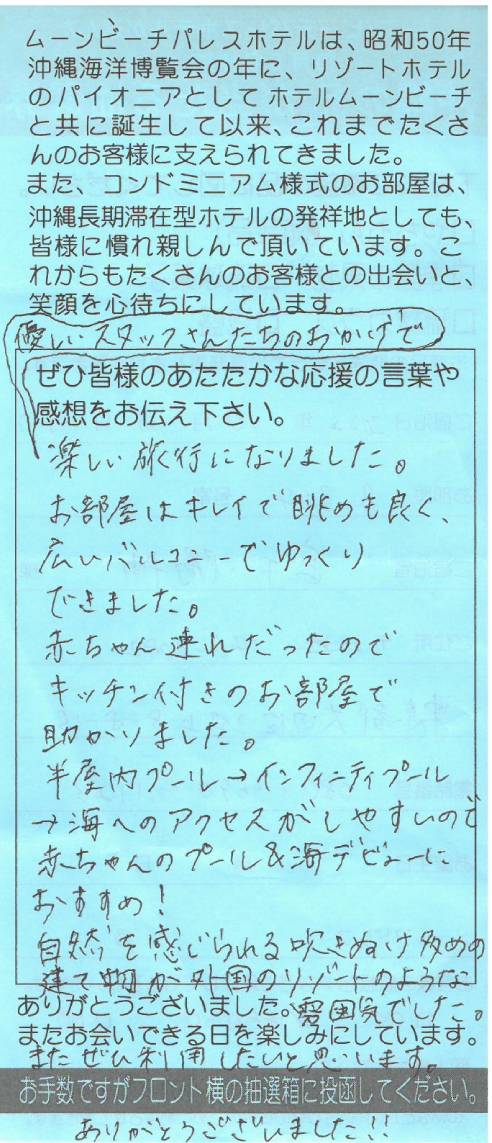 ムーンビーチパレスホテルは、昭和50年
沖縄海洋博覧会の年に、リゾートホテル
のパイオニアとして ホテルムーンビーチ
と共に誕生して以来、これまでたくさ
んのお客様に支えられてきました。
また、コンドミニアム様式のお部屋は、
沖縄長期滞在型ホテルの発祥地としても、
皆様に慣れ親しんで頂いています。こ
れからもたくさんのお客様との出会いと、
笑顔を心待ちにしています。
優しいスタッフさんたちのおかげで
ぜひ皆様のあたたかな応援の言葉や
感想をお伝え下さい。
楽しい旅行になりました。
お部屋はキレイで眺めも良く、
広いバルコニーでゆっくり
できました。
赤ちゃん連れだったので
キッチン付きのお部屋で
助かりました。
半屋内プール→インフィニティプール
→海へのアクセスがしやすいので
赤ちゃんのプール&海デビューに
おすすめ!
自然を感じられる吹きぬけ多めの
建て物が外国のリゾートのような
雰囲気でした。
ありがとうございました。
またお会いできる日を楽しみにしています。
またぜひ利用したいと思います。
お手数ですがフロント横の抽選箱に投函してください。
ありがとうございました!!